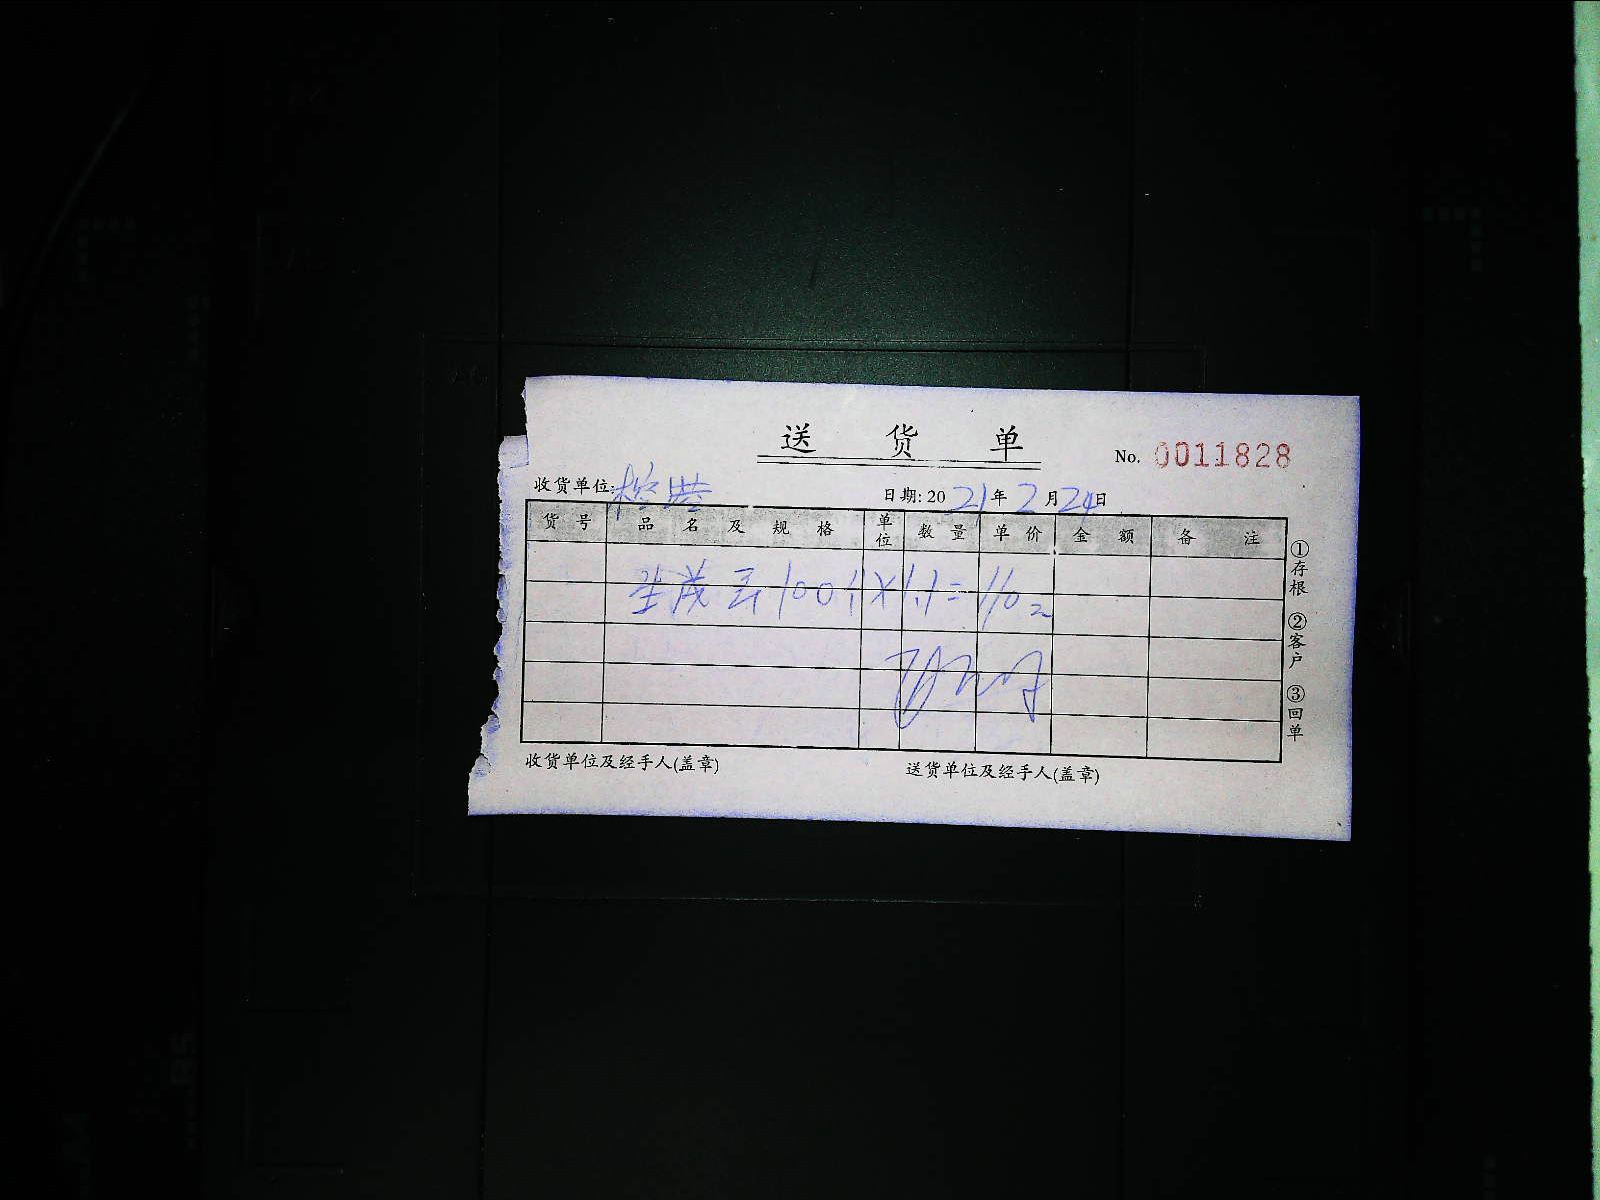 送货单
No. 0011828
收货单位:
日期: 2021年2月24日
货号 品名及规格 单位 数量 单价 金额 备注
100个×1.1=110
收货单位及经手人(盖章) 送货单位及经手人(盖章)
①存根 ②客户 ③回单